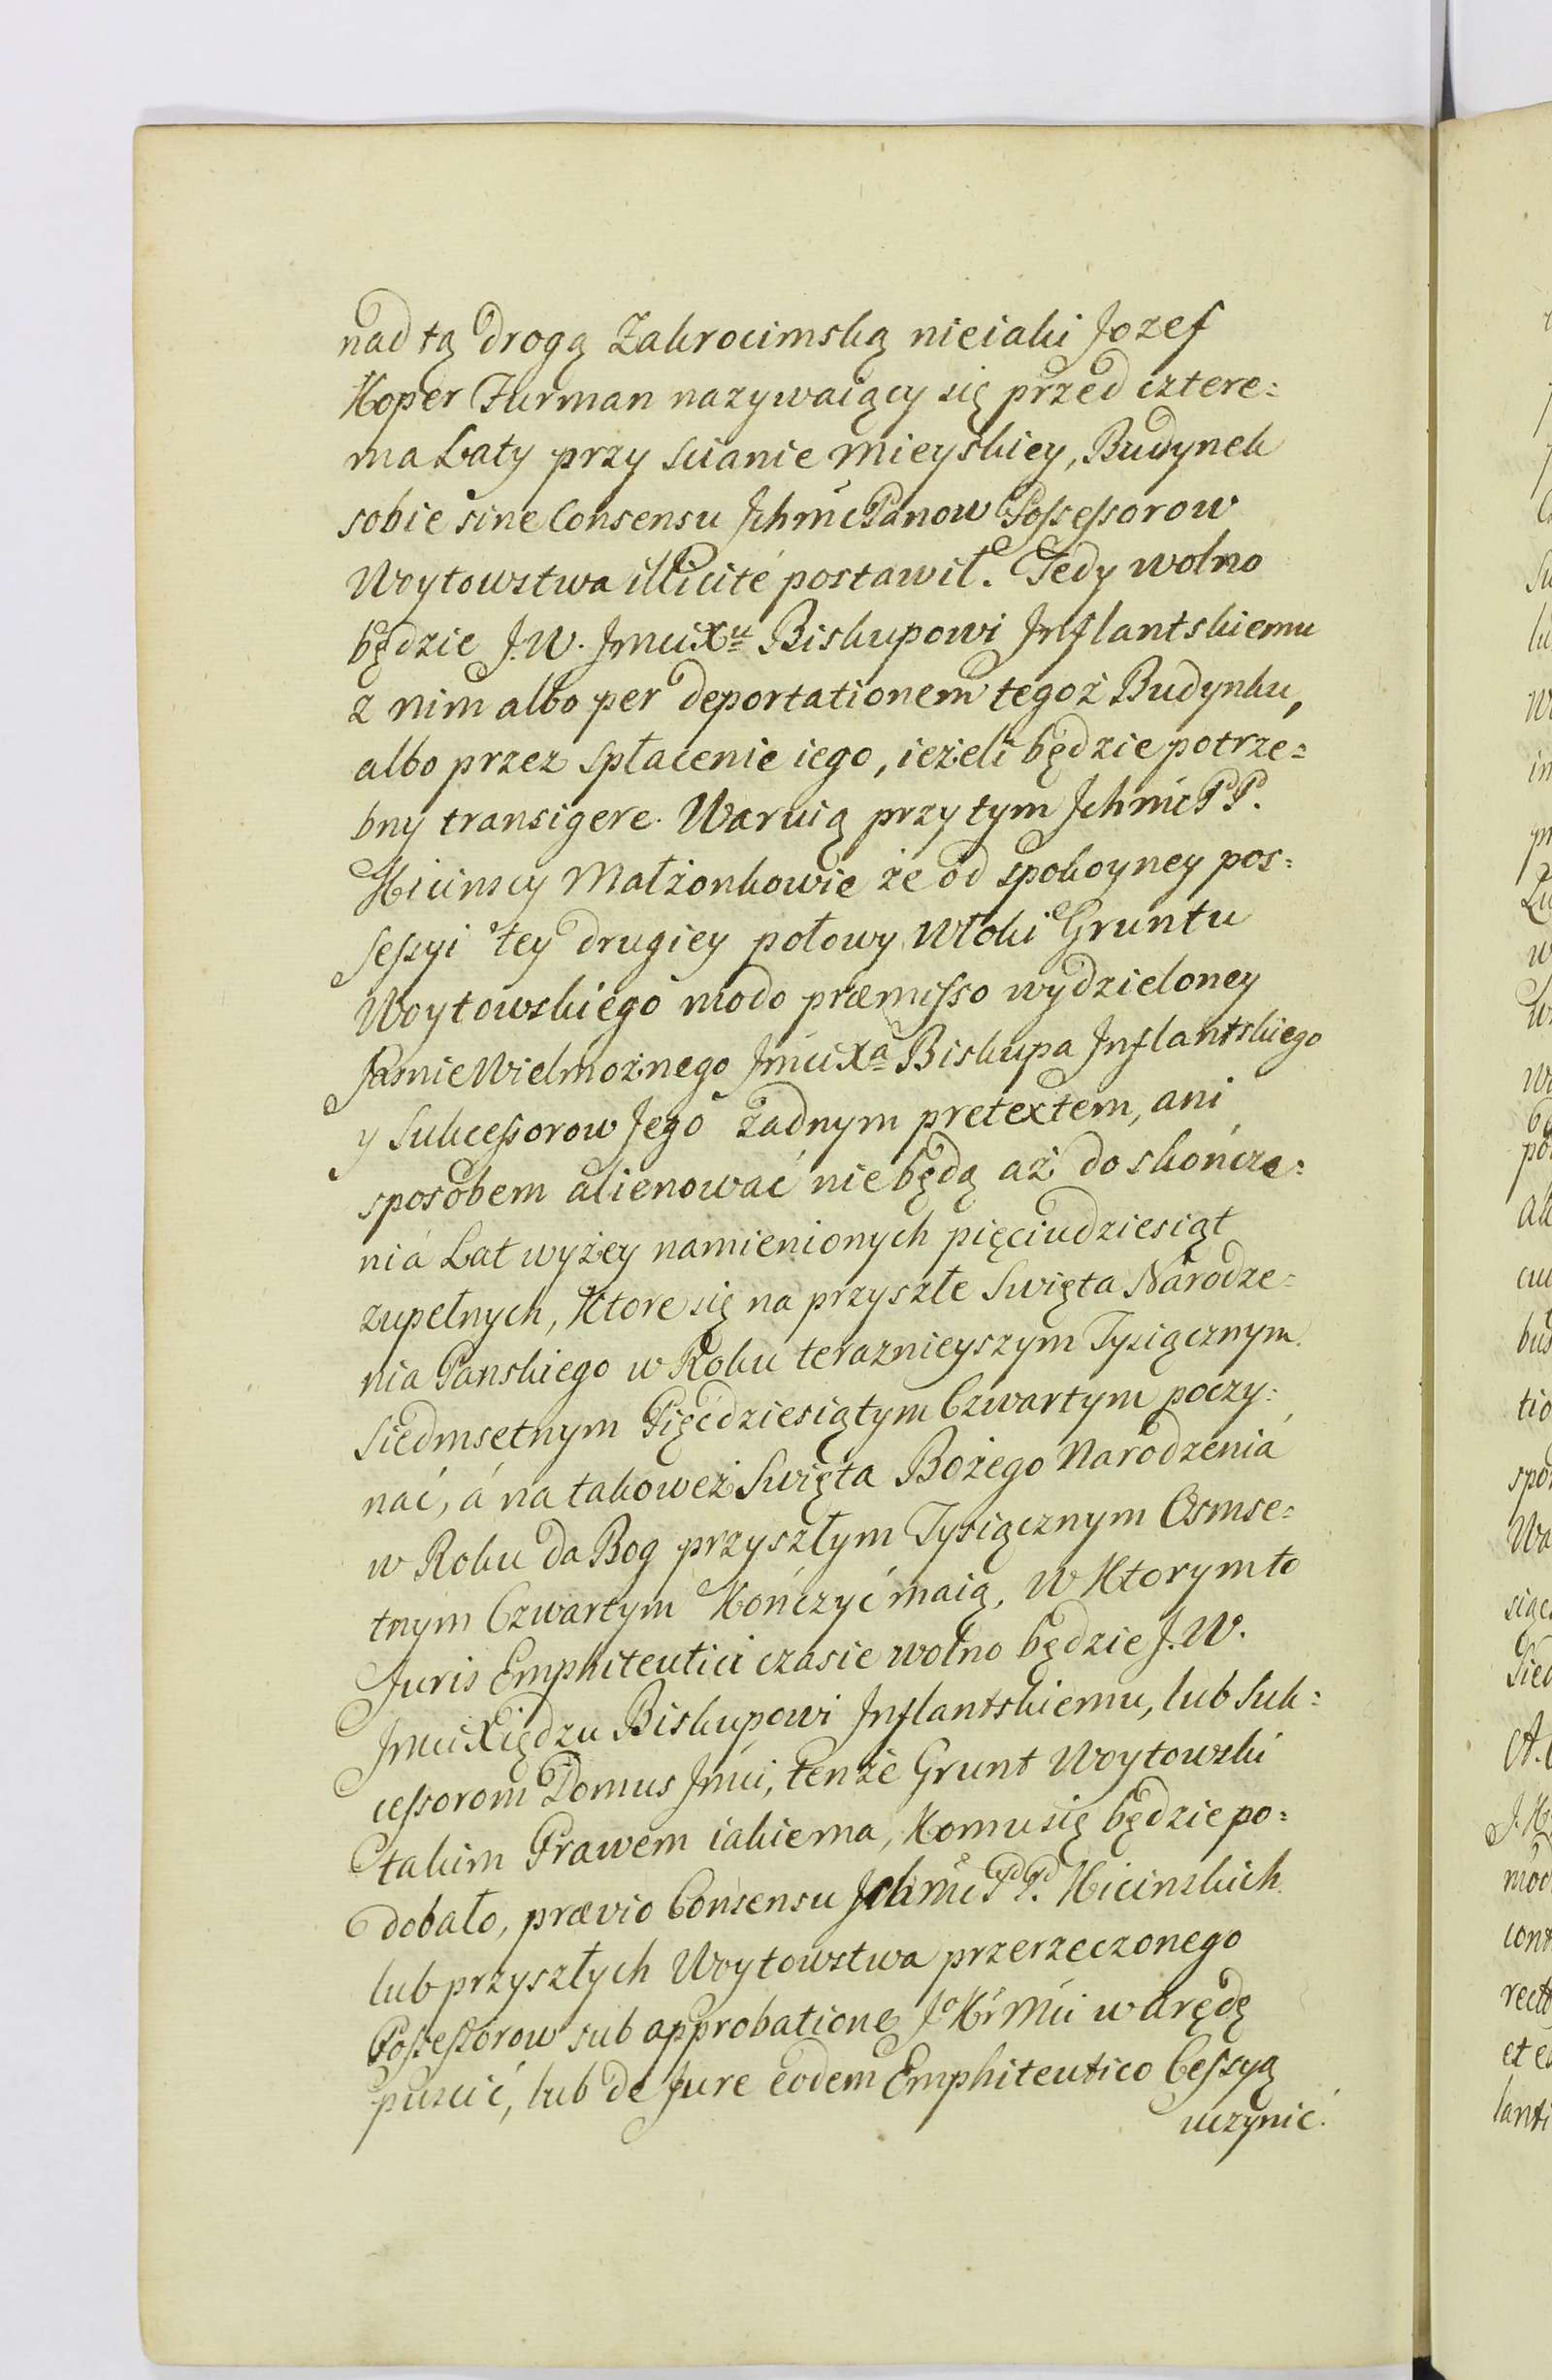 nad tą drogą Zakrocimską nieiaki Jozef
Koper Furman nazywaiący się przed cztere=
ma Laty przy scianie Mieyskiey, Budynek
sobie sine Consensu Jchmc Panow Possessorow
Woytowstwa illicité postawił. Tedy wolno
będzie J.W. Jmci Xu Biskupowi Jnflantskiemu
z nim albo per deportationem tegoż Budynku,
albo przez spłacenie iego, ieżeli będzie potrze=
bny transigere. Waruią przy tym Jchmc PP.
Kicinscy Małżonkowie że od spokoyney pos=
sessyi tey drugiey połowy Włoki Gruntu
Woytowskiego modo præmisso wydzieloney
Jasnie Wielmożnego Jmci Xa Biskupa Jnflantskiego
y Sukcessorow Jego żadnym pretextem, ani
sposobem alienować nie będą aż do skończe=
nia Lat wyżey namienionych pięciudziesiąt
zupełnych, Ktore się na przyszłe Swięta Narodze=
nia Panskiego w Roku teraznieyszym Tysiącznym
Siedmsetnym Pięćdziesiątym Czwartym poczy=
nać, á na takoweż Swięta Bożego Narodzenia
w Roku da Bog przyszłym Tysiącznym Osmse=
tnym Czwartym Kończyć maią. W Ktorym to
Juris Emphiteutici czasie wolno będzie J.W.
Jmci Xiędzu Biskupowi Jnflantskiemu, lub Suk=
cessorom Domus Jmci, tenże Grunt Woytowski
takim Prawem iakie ma, Komu się będzie po=
dobało, prævio Consensu Jchmc PP. Kicinskich
lub przyszłych Woytowstwa przerzeczonego
Possessorow sub approbatione Jo Kr Mci w arędę
puscić, lub de Jure eodem Emphiteutico Cessyą
uczynić.